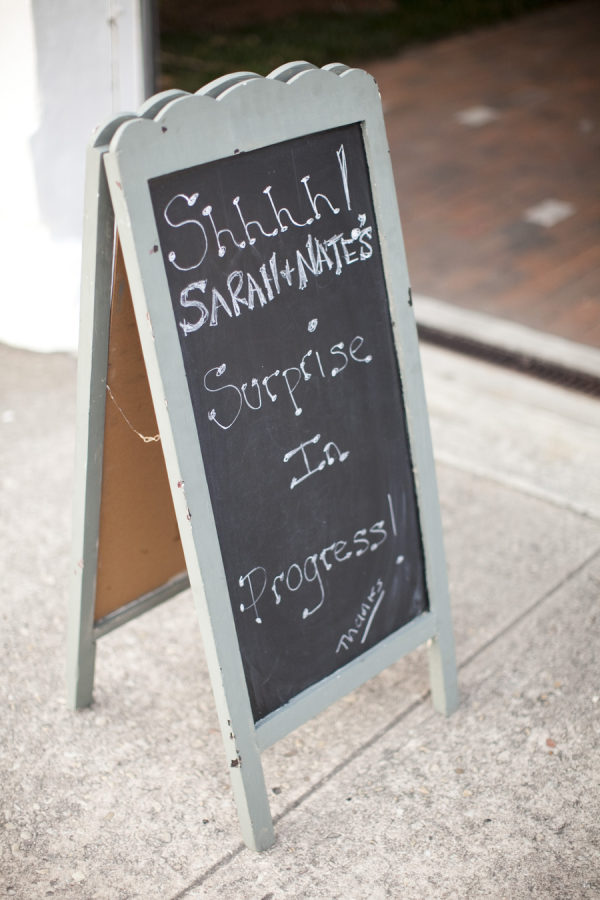 Shhhh!
SARAH + NATE'S
Surprise
In
Progress!